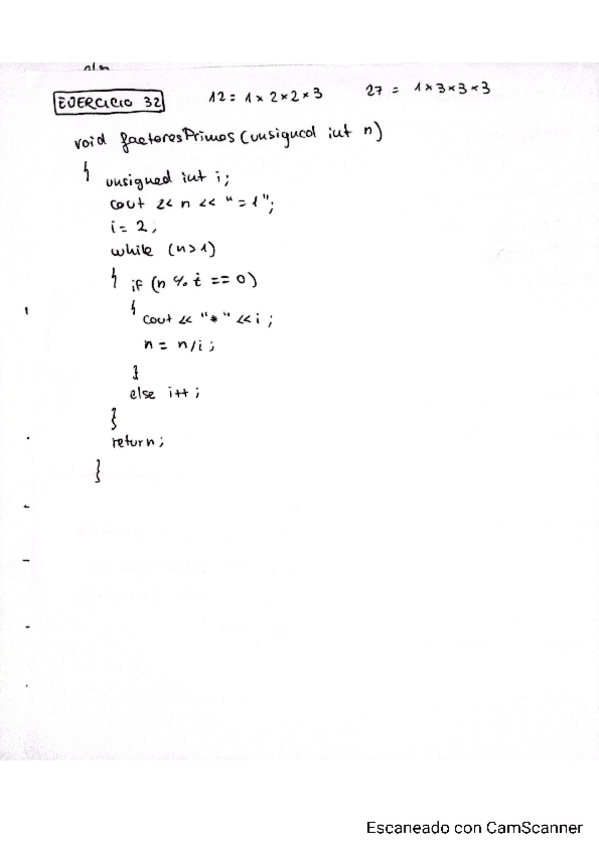 n/m
EJERCICIO 32 12 = 1 × 2 × 2 × 3 27 = 1 × 3 × 3 × 3
void factoresPrimos (unsigned int n)
{
unsigned int i;
cout << n << "=1";
i = 2;
while (n>1)
{
if (n % i == 0)
{
cout << "*" << i ;
n = n/i ;
}
else i++ ;
}
return;
}
Escaneado con CamScanner